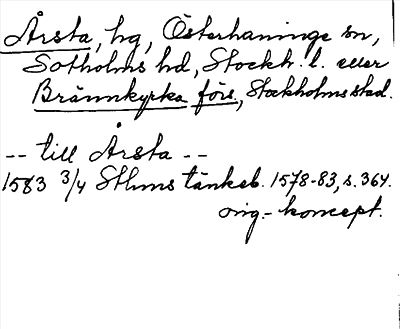 Årsta, hg, Österhaninge sn,
Sotholms hd, Stockh. l. eller
Brännkyrka förs, Stockholms stad.
-- till Årsta --
1583 3/4 Sthms tänkeb. 1578-83, s. 364.
orig.- koncept.